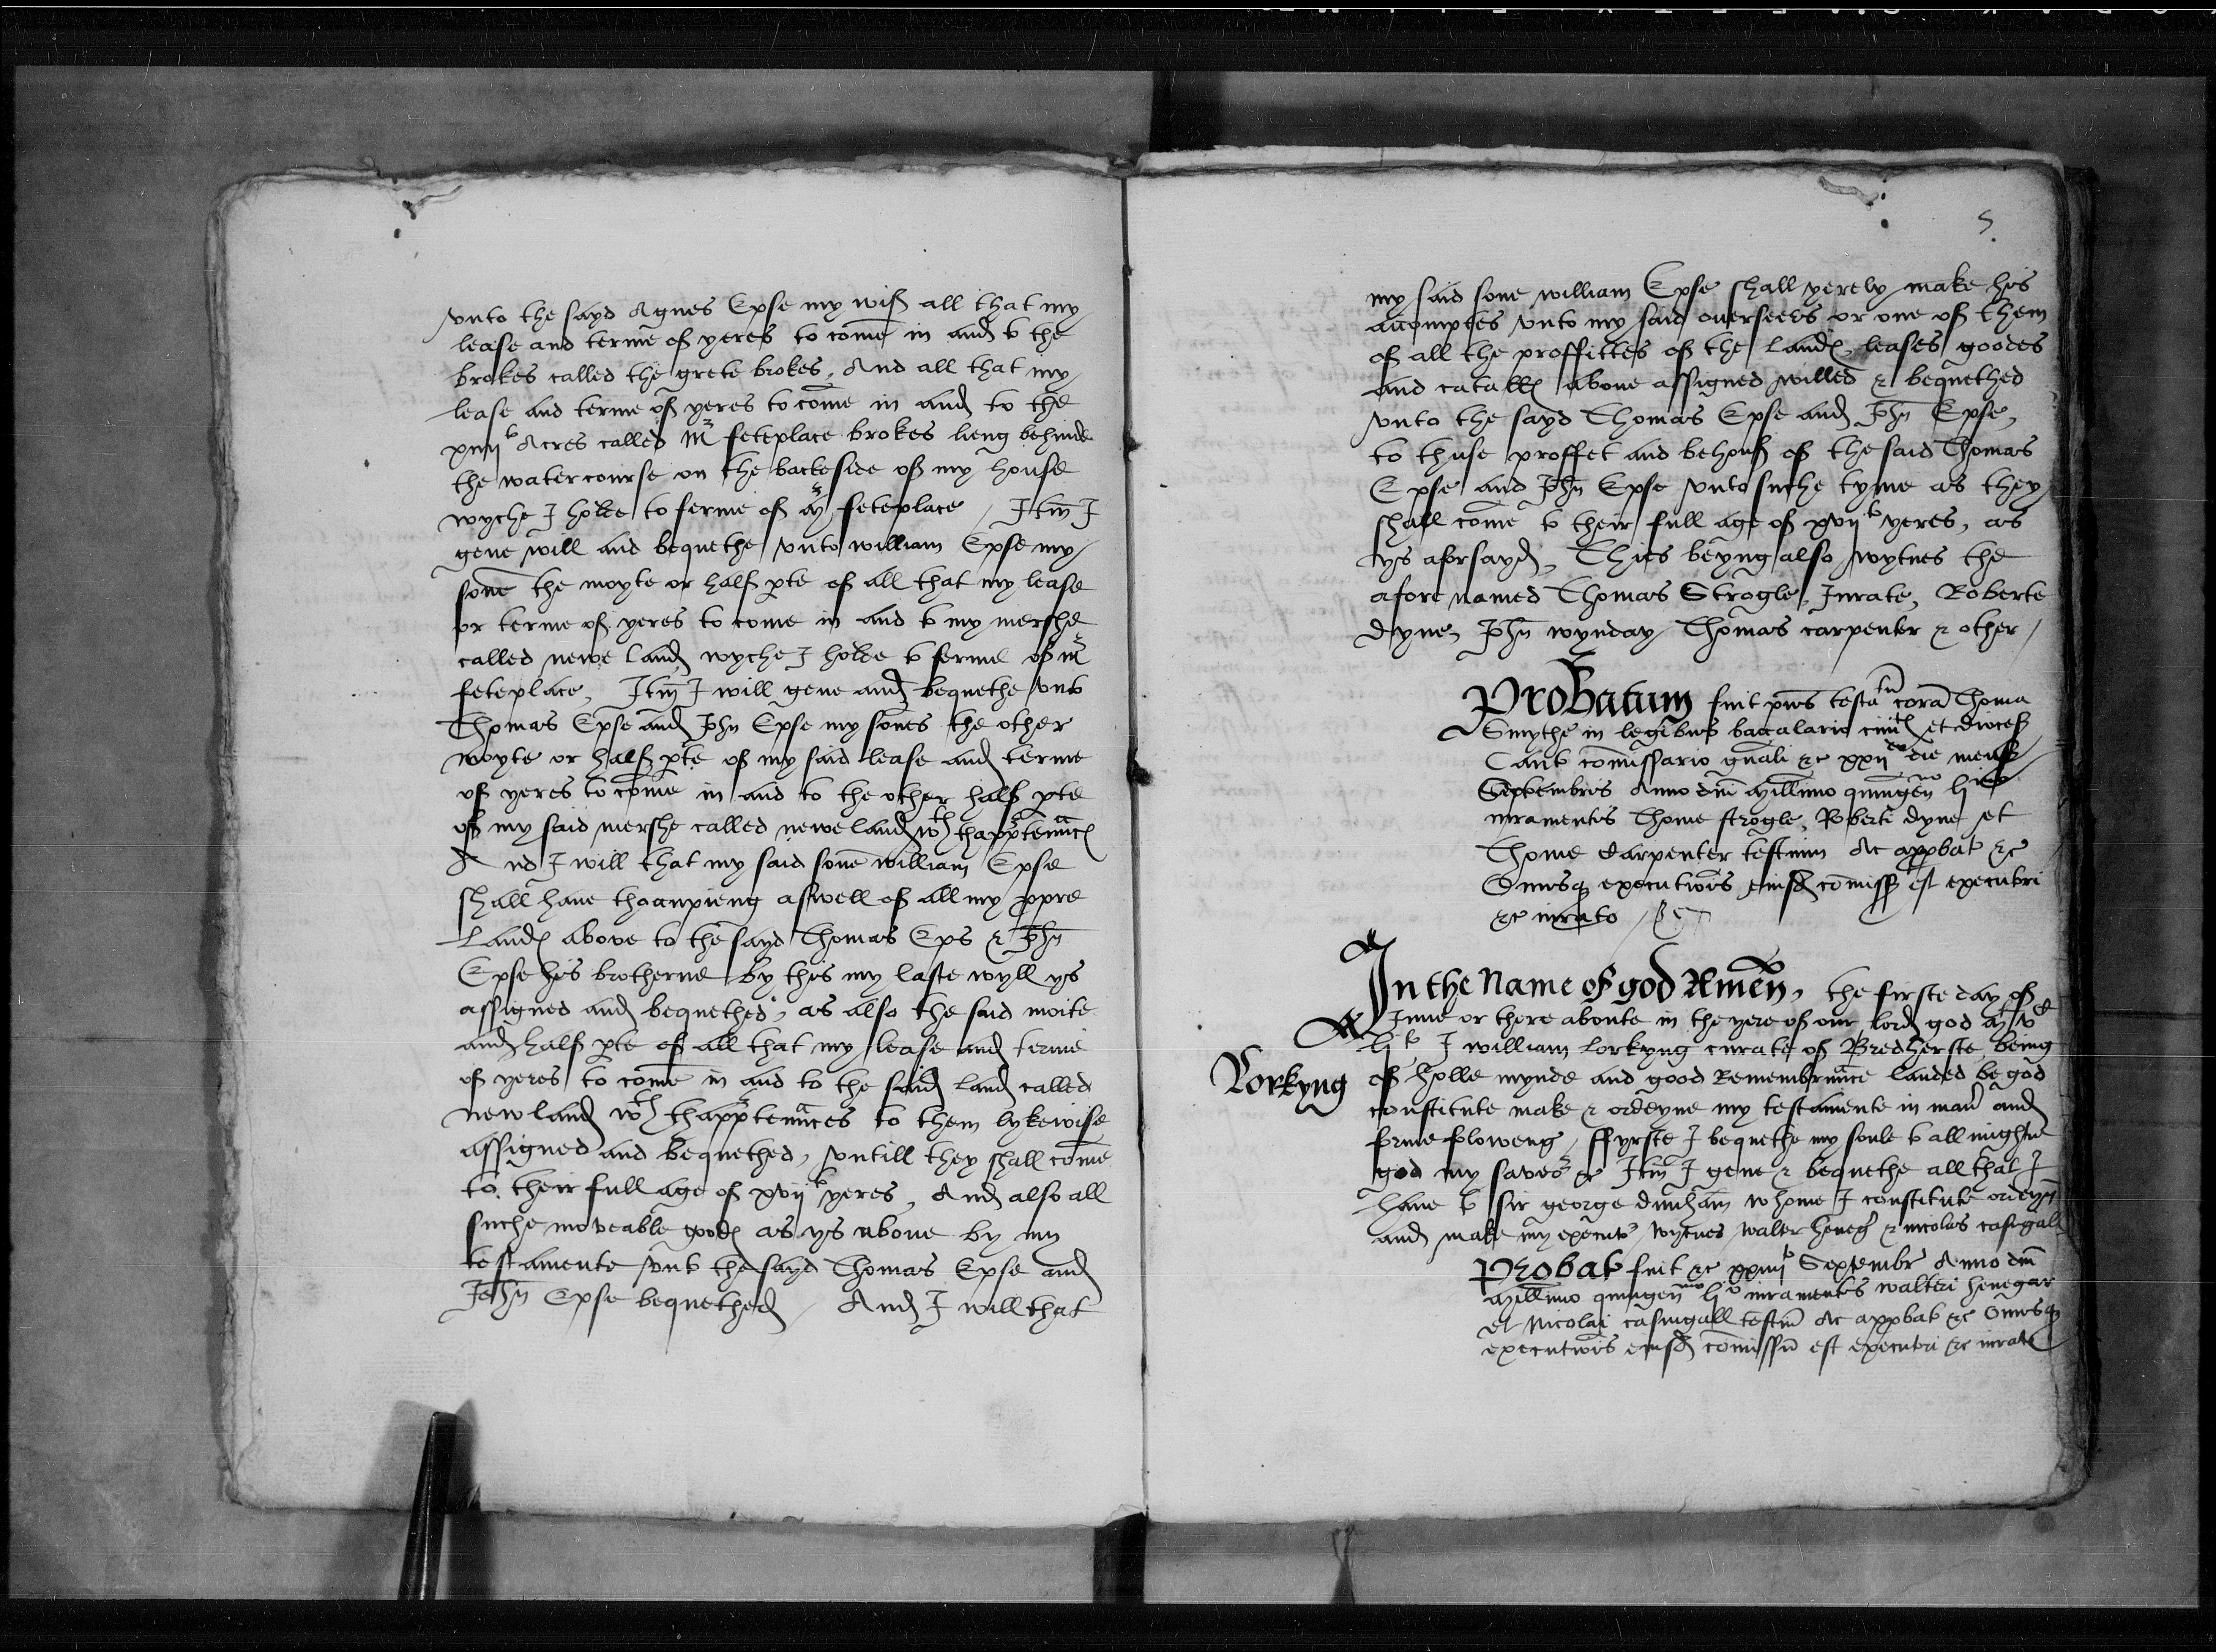 vnto the sayd Agnes Epse my wif all that my
lease and terme of yeres to come in and to the
brokes called the grete brokes, And all that my
lease and terme of yeres to come in and to the
xiiij Acres called Mr feteplace brokes lieng behinde
the watercourse on the backeside of my house
wyche I holde to ferme of Mr feteplace / Itm I
geue will and bequethe vnto william Epse my
sone the moyte or half pte of all that my lease
or terme of yeres to come in and to my mershe
called newe land wyche I holde to ferme of Mr
feteplace, Itm I will geue and bequethe vnto
Thomas Epse and John Epse my sones the other
moyte or half pte of my said lease and terme
of yeres to come in and to the other half pte
of my said mershe called newe land wth thapptennces
And I will that my said sone william Epse
shall haue thoccupieng aswell of all my ppre
Landes above to the sayd Thomas Eps & John
Epse his brotherne by this my laste wyll ys
assigned and bequethed, as also the said moite
and half pte of all that my lease and terme
of yeres to come in and to the said land called
newland wth thapptennces to them lykewise
assigned and bequethed, vntill they shall come
to their full age of xvij yeres, And also all
suche moveable goodes as ys above by my
testamente vnto the sayd Thomas Epse and
John Epse bequethed / And I will that
5.
my said sone william Epse shall yerely make his
accomptes vnto my said ouerseers or one of them
of all the proffittes of the landes, leases goodes
and catalles aboue assigned willed & bequethed
vnto the sayd Thomas Epse and John Epse,
to thuse proffet and behouf of the said Thomas
Epse and John Epse vnto suche tyme as they
shall come to their full age of xvij yeres, as
ys aforsayd, Thies beyng also wytnes the
afore named Thomas Strogle, Curate, Roberte
dyne, John wynday Thomas carpenter & other /
Probatum fuit pns testatm cora Thoma
Smythe in legibus baccalario ciuit et dioces
Cant comissario gnali &c xxij die mens
Septembris Anno dni millimo quingen lj
iuramentis Thome strogle, Roberti dyne et
Thome Carpenter testium Ac approbat &c
Onusq executionis eiusd comiss est executri
&c iurato
In the Name of god Amen, the firste day of
June or there aboute in the yere of our lord god M vc
lj I william lorkyng curate of Bredherste being
Lorkyng
of holle mynde and good Remembraunce lauded be god
constitute make & ordeyne my testamente in maner and
forme foloweng, ffyrste I bequethe my soule to allmightie
god my saveor &c Itm I geue & bequethe all that I
haue to sir george dunham whome I constitute ordeyn
and make my executor wytnes walter heneg & nicolas casugall
Probat fuit &c xxiiij Septembr Anno dni
Millimo quingen lj iuramentis walteri henegar
et Nicolai casingall testm Ac approbat &c Onusq
executionis eiusd comissu est executri &c iurato